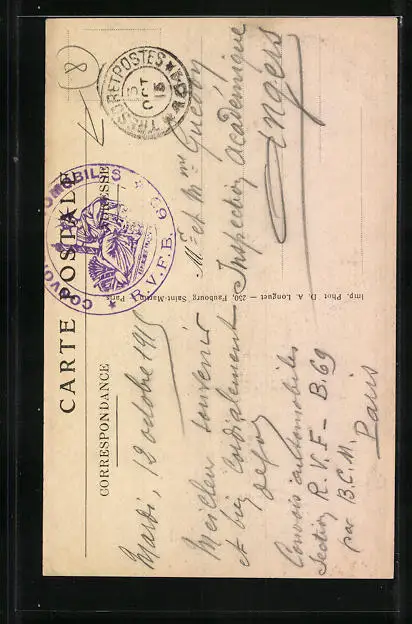 CARTE POSTALE
CORRESPONDANCE
ADRESSE
Mardi, 12 octobre 1915
Meilleur souvenir
et bien cordialement
Convois automobiles
Section R.V.F - B.69
par B.C.M.
Paris
8
TRESOR ET POSTES
15
OCT
15
CONVOIS AUTOMOBILES
R.V.F.B. 69
Mr et Mme Guédon
Inspection Académique
Angers
Imp. Phot. D. A. Longuet — 250, Faubourg Saint-Martin, Paris